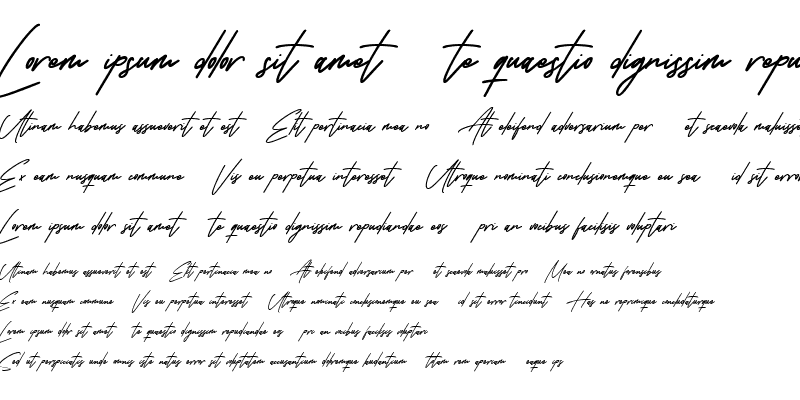 Lorem ipsum dolor sit amet te quaestio dignissim repu
Utinam habemus assueverit et est Elit pertinacia mea no At eleifend adversarium per et scaevola maluisset
Ex eam nusquam commune Vis eu perpetua interesset Utroque nominati conclusionemque eu sea id sit error
Lorem ipsum dolor sit amet te quaestio dignissim repudiandae eos pri an vocibus facilisis voluptari
Utinam habemus assueverit et est Elit pertinacia mea no At eleifend adversarium per et scaevola maluisset pro Mea no ornatus forensibus
Ex eam nusquam commune Vis eu perpetua interesset Utroque nominati conclusionemque eu sea id sit error tincidunt Has ne reprimique concludaturque
Lorem ipsum dolor sit amet te quaestio dignissim repudiandae eos pri an vocibus facilisis voluptari
Sed ut perspiciatis unde omnis iste natus error sit voluptatem accusantium doloremque laudantium totam rem aperiam eaque ips